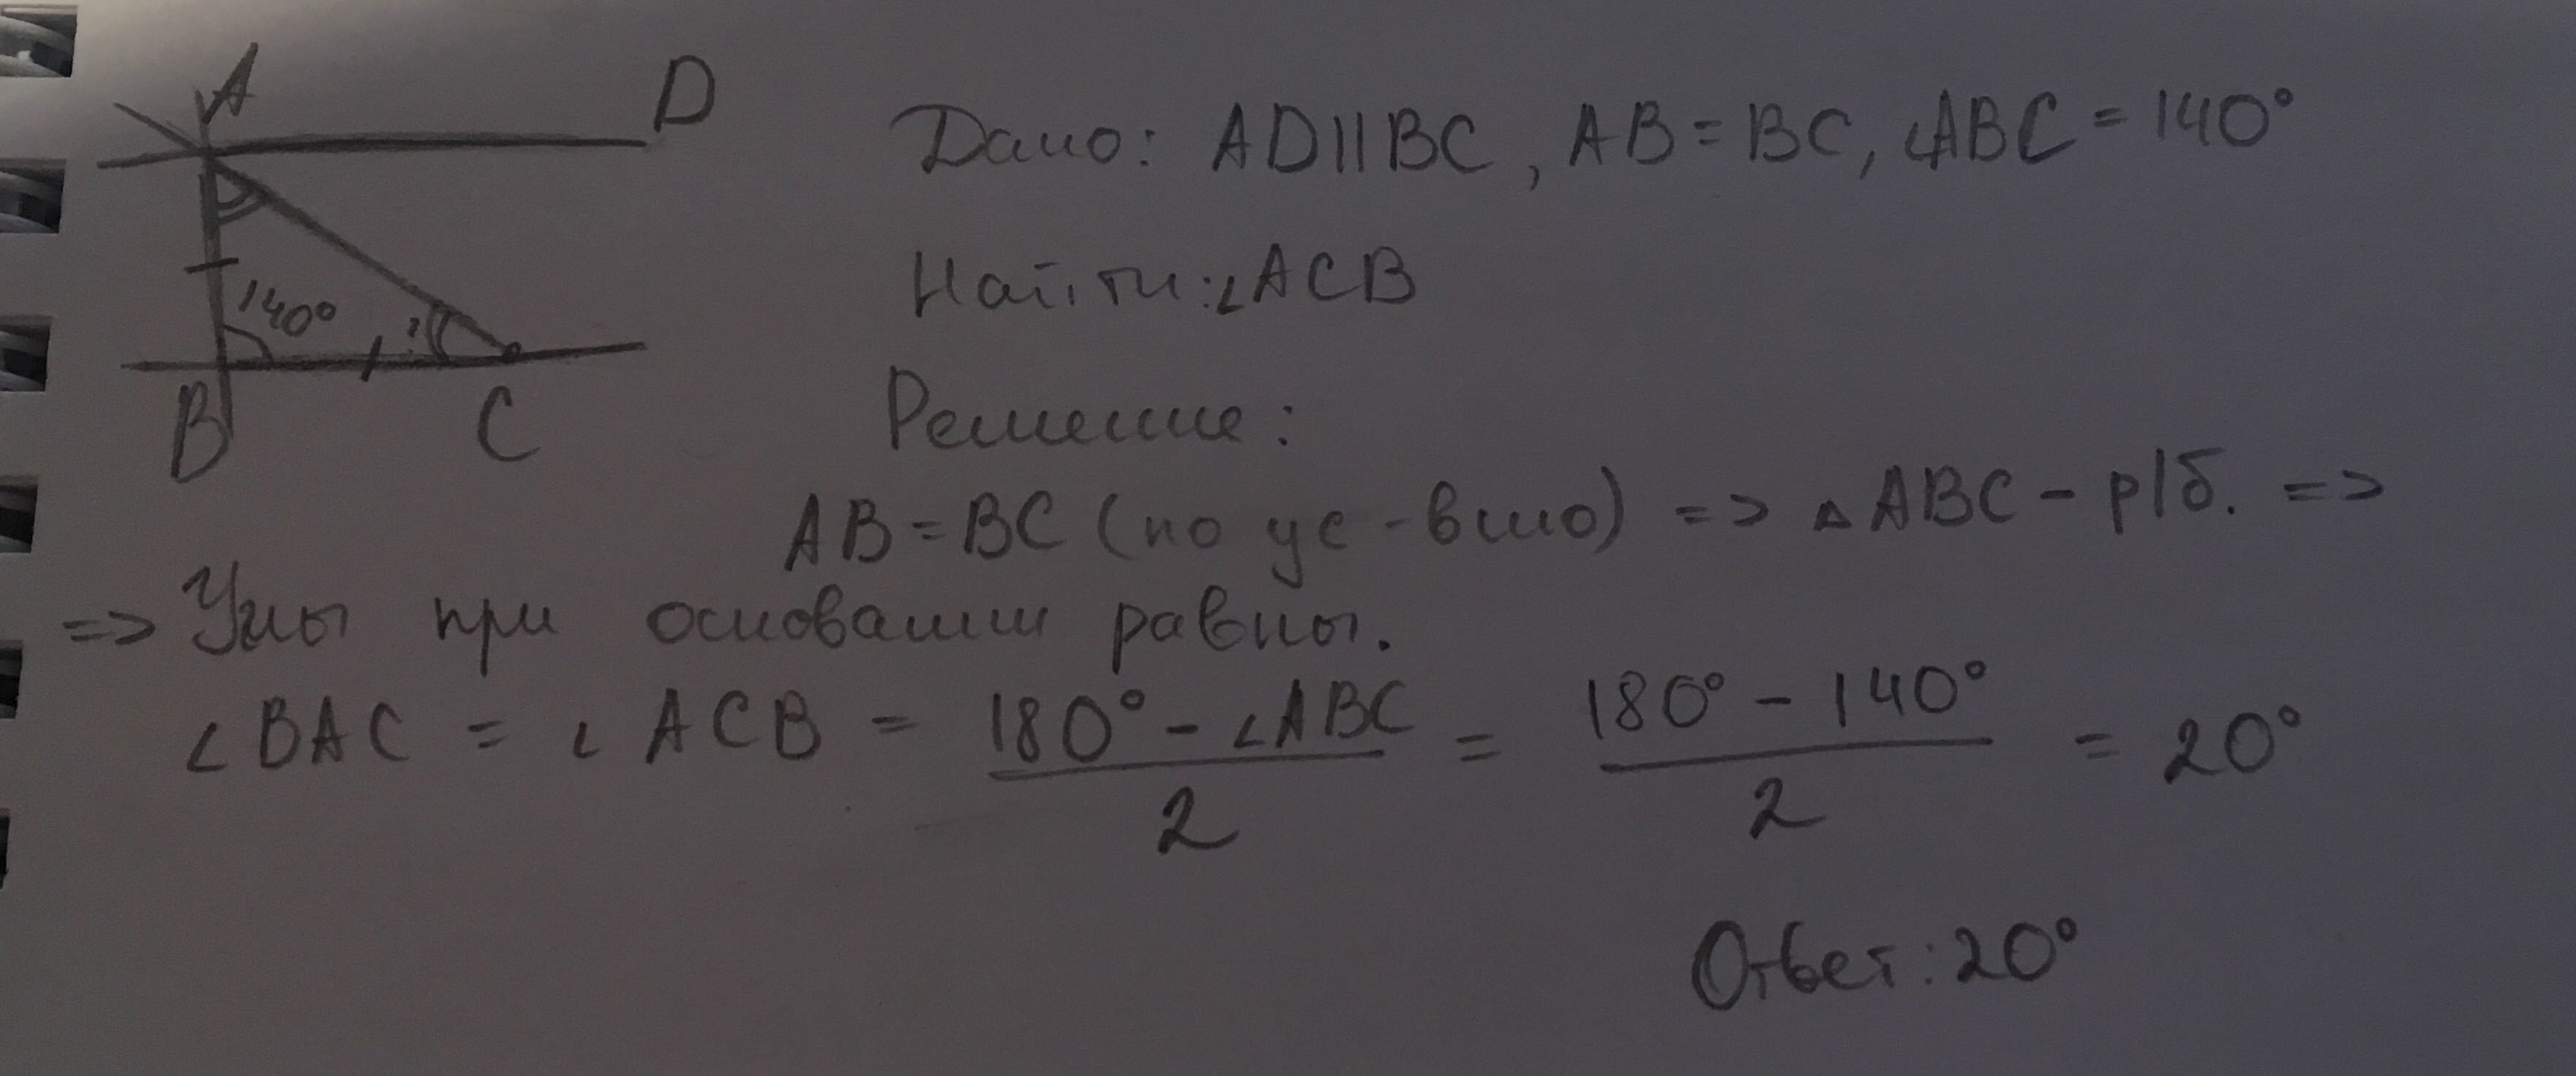 A
D
Дано: AD||BC, AB=BC, ∠ABC=140°
140°
?
Найти:∠ACB
B
C
Решение:
AB=BC (по ус-вию) => △ABC - р/б. =>
=> Углы при основании равны.
∠BAC = ∠ACB = (180° - ∠ABC)/2 = (180° - 140°)/2 = 20°
Ответ: 20°